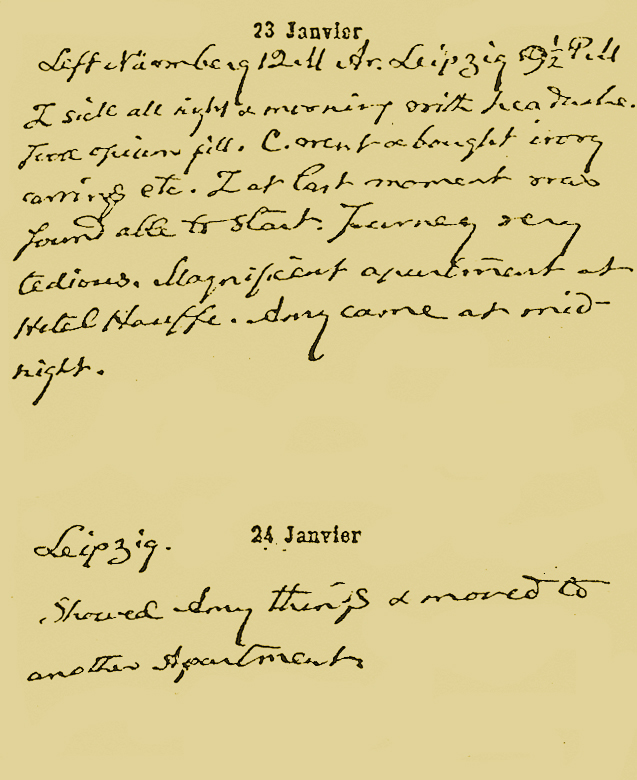 23 Janvier
Left Nürmberg 12M Ar. Leipzig 9½ P.M
I sick all night & morning with headache.
Took opium pill. C. went & bought ivory
carvings etc. I at last moment was
found able to start. Journey very
tedious. Magnificent apartment at
Hotel Hauffe. Amy came at mid-
night.
24 Janvier
Leipzig.
Showed Amy things & moved to
another Apartment.